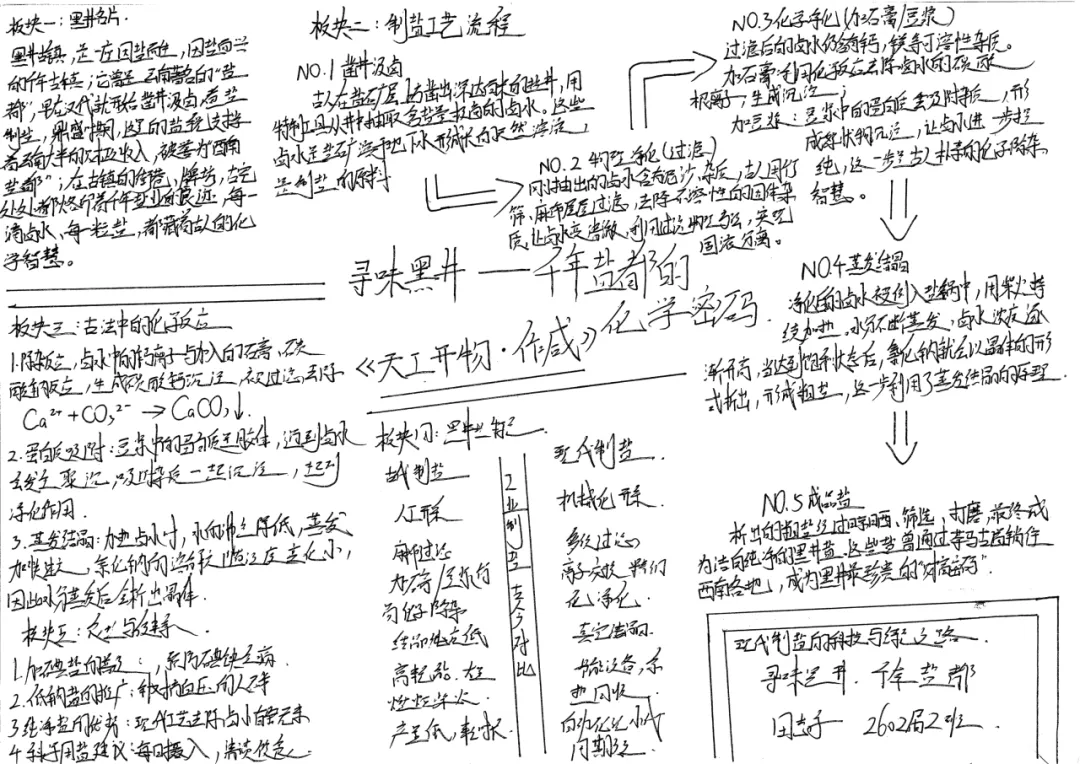 板块一：黑井名片
黑井古镇，是一座因盐而生，因盐而兴
的千年古镇；它曾是云南著名的“盐
都”，早在汉代就开始凿井汲卤，煮盐
制盐，鼎盛时期，这里的盐税支持
着云南大半的财政收入，被誉为“西南
盐都”；在古镇的街巷，牌坊，古宅
处处都烙印着千年盐业的痕迹，每一
滴卤水，每一粒盐，都藏着古人的化
学智慧。
板块二：制盐工艺流程
NO.1 凿井汲卤
古人在盐矿层上方凿出深达数米的盐井，用
特制工具从井中抽取含盐量极高的卤水。这些
卤水是盐矿溶于地下水形成的天然溶液，
是制盐的原料
NO.2 物理净化（过滤）
刚抽出的卤水含有泥沙，杂质，古人用竹
筛，麻布层层过滤，去除不溶性的固体杂
质，让卤水变清澈，利用过滤物理方法，实现
固液分离。
NO.3 化学净化（加石膏/豆浆）
过滤后的卤水仍含有钙，镁等可溶性杂质。
加石膏：利用化学反应去除卤水的碳酸
根离子，生成沉淀；
加豆浆：豆浆中的蛋白质会吸附杂质，形
成絮状物沉淀，让卤水进一步提
纯，这一步是古人朴素的化学除杂
智慧。
NO.4 蒸发结晶
净化的卤水被倒入盐锅中，用柴火持
续加热，水分不断蒸发，卤水浓度逐
渐升高，当达到饱和状态后，氯化钠就会以晶体的形
式析出，形成粗盐，这一步利用了蒸发结晶的原理
NO.5 成品盐
析出的粗盐经过晾晒、筛选，打磨，最终成
为洁白纯净的黑井盐。这些盐曾通过茶马古道销往
西南各地，成为黑井最珍贵的“财富密码”
寻味黑井——千年盐都的
化学密码
《天工开物·作咸》
板块三：古法中的化学反应
1.除杂反应，卤水中的钙离子与加入的石膏、碳
酸钠反应，生成碳酸钙沉淀，被过滤去除
Ca²⁺+CO₃²⁻→CaCO₃↓
2.蛋白质吸附：豆浆中的蛋白质是胶体，遇到卤水
会发生聚沉，吸附杂质一起沉淀，起到
净化作用。
3.蒸发结晶：加热卤水时，水的沸点降低，蒸发
加快，氯化钠的溶解度随温度变化小，
因此水分蒸发后会析出晶体
板块四：黑井
古代制盐
人工开采
麻布过滤
加石膏/豆浆
简单除杂
结晶效率低
高耗能
燃烧柴火
产量低，耗时长
工业制盐古今对比
现代制盐
机械化开采
多级过滤
离子交换
化净化
真空结晶
节能设备，余
热回收
自动化
周期短
板块五：
1.加碘盐的普及：，预防碘缺乏病
2.低钠盐的推广：针对高血压的人群
3.纯净盐的优势：现代工艺去除卤水有害元素
4.科学用盐建议：每日摄入，清淡饮食
现代制盐的科技与绿色之路
寻味黑井·千年盐都
2602届2班